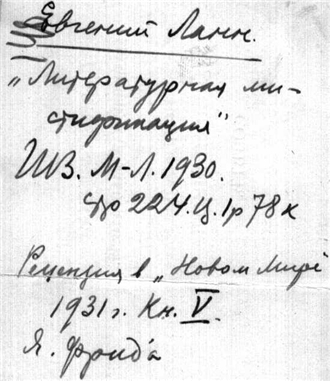 Евгений Ланн.
„Литературная ми-
стификация"
ГИЗ. М-Л. 1930.
стр 224. Ц. 1р 78к
Рецензия в „Новом Мире"
1931 г. Кн. V.
Я. Фрида